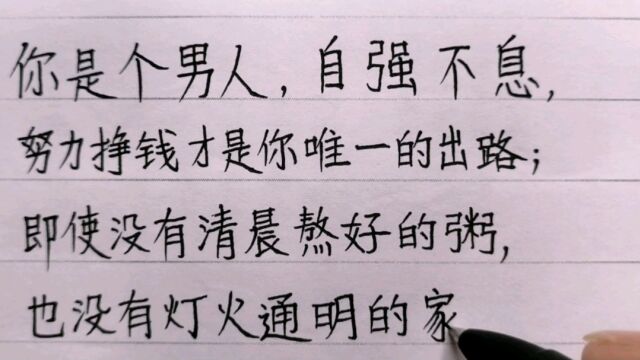 你是个男人,自强不息,
努力挣钱才是你唯一的出路;
即使没有清晨熬好的粥,
也没有灯火通明的家